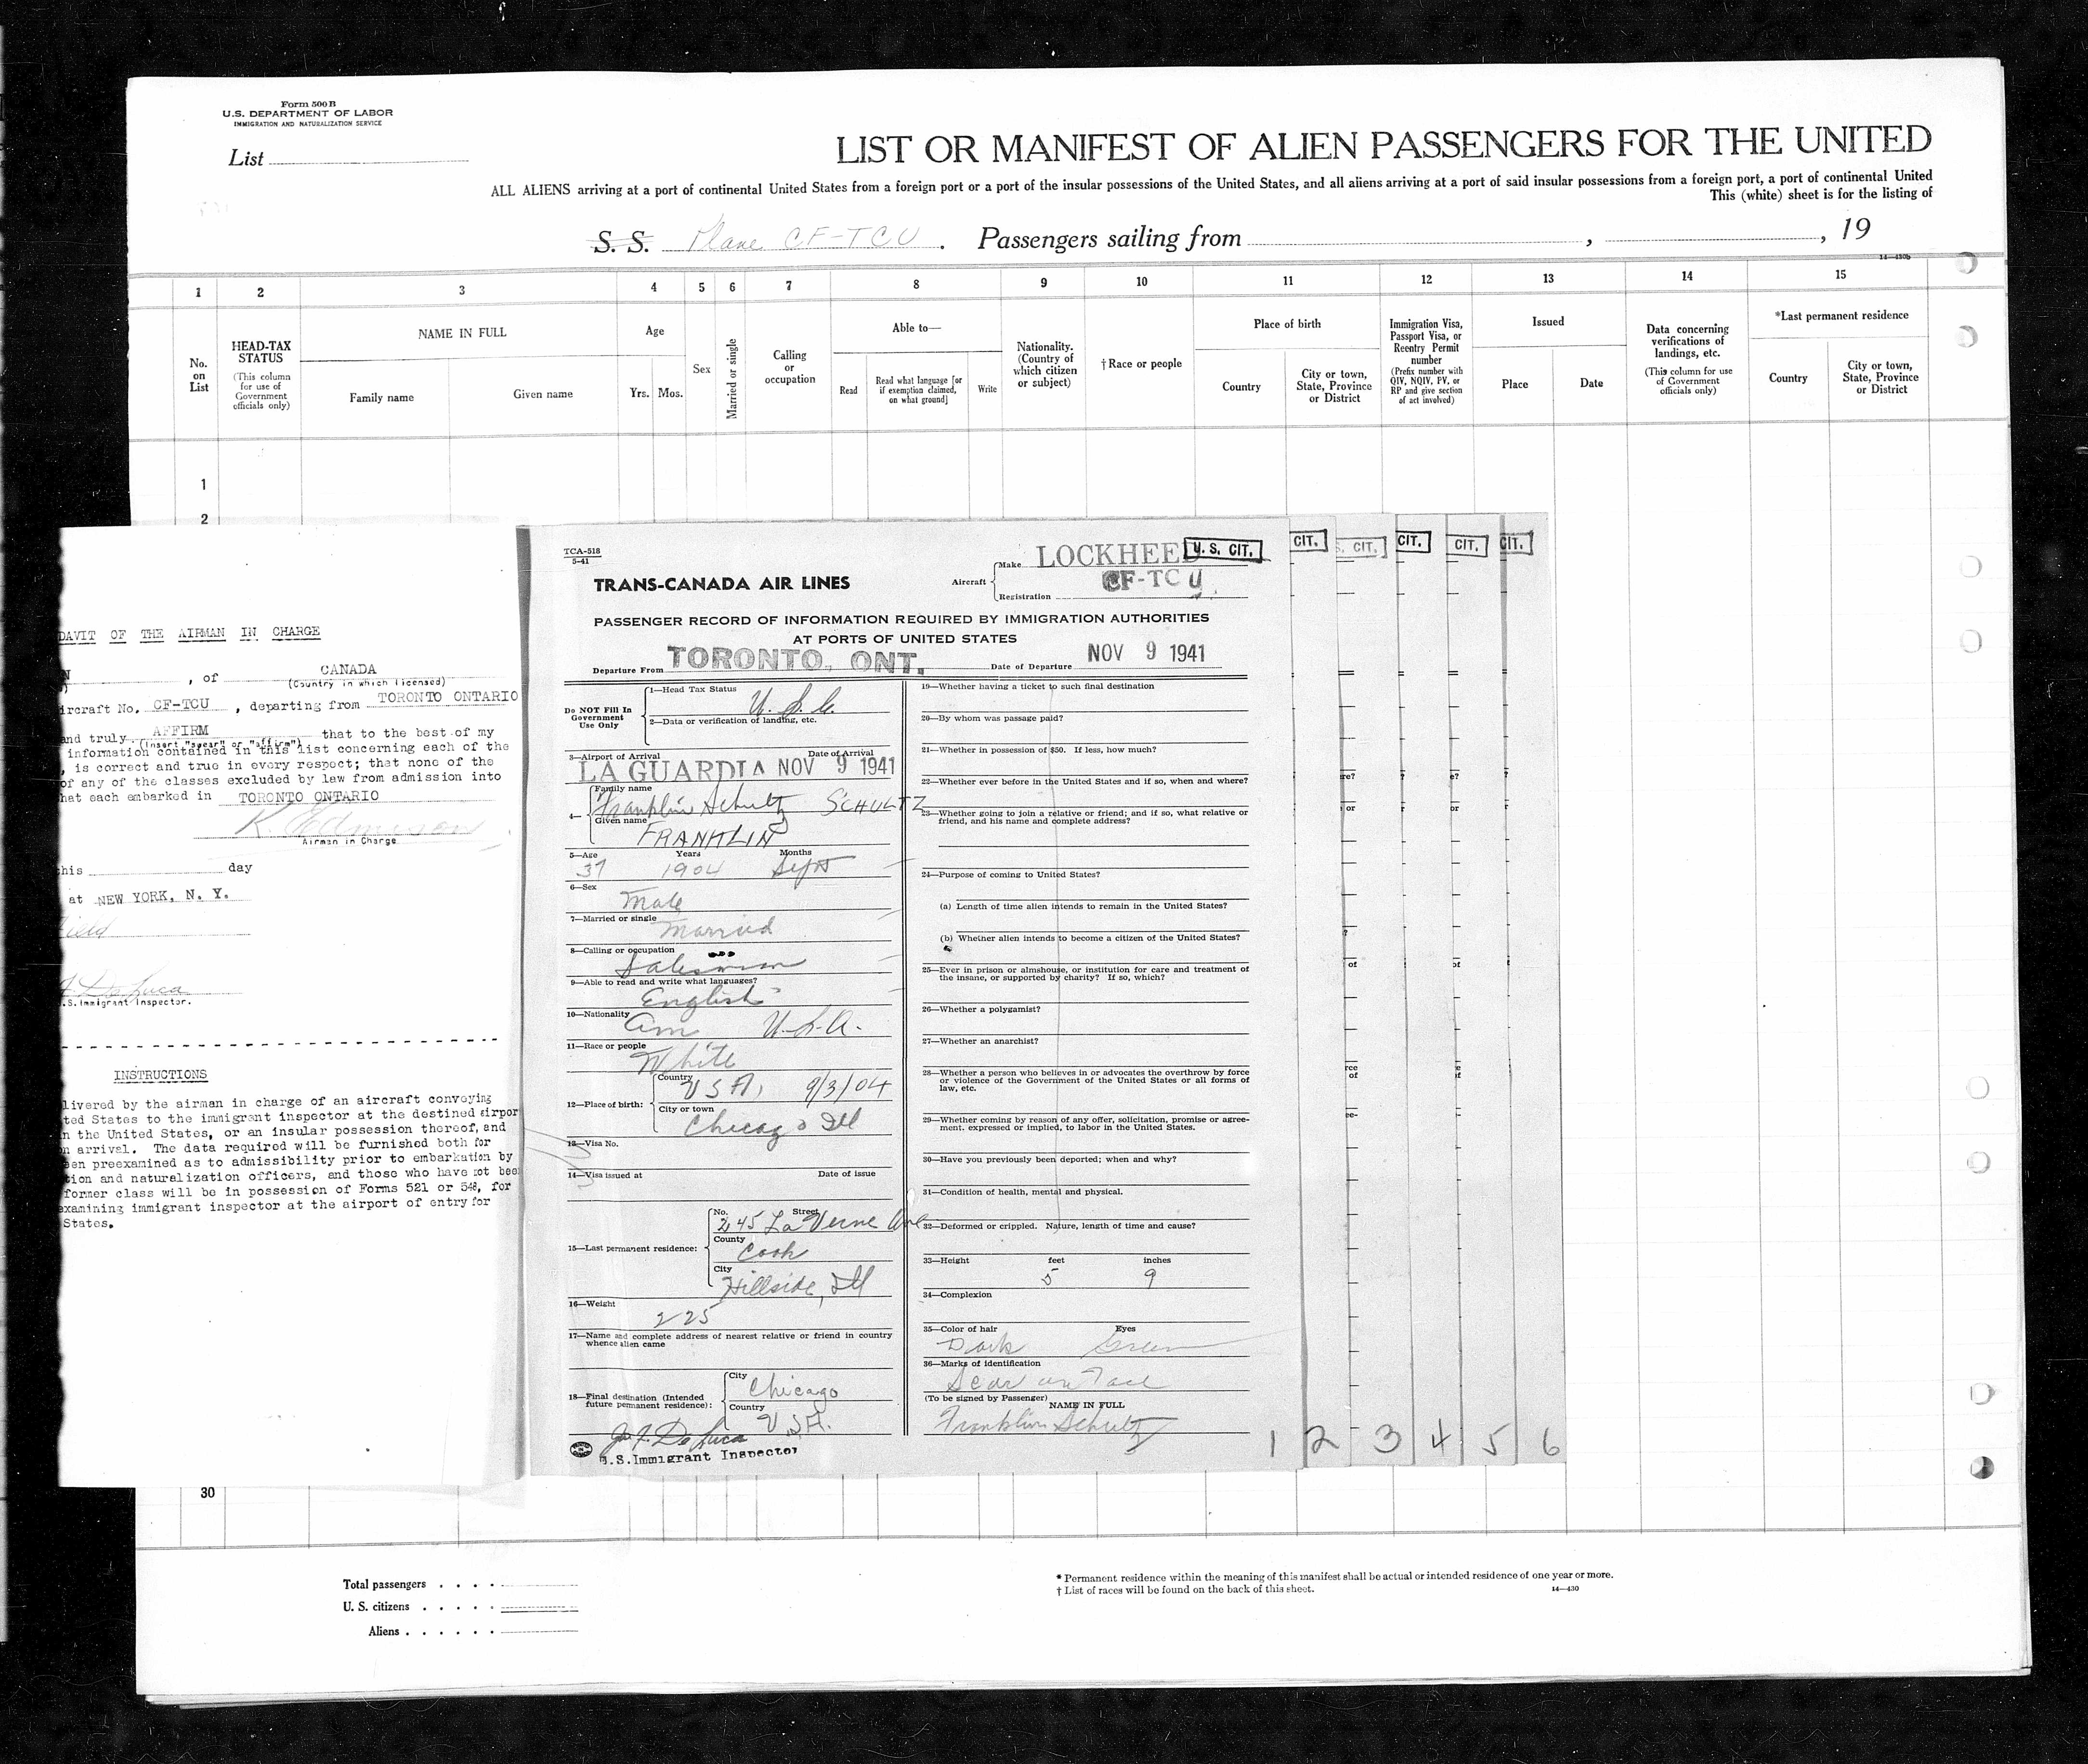 Form 500 B
U.S. DEPARTMENT OF LABOR
IMMIGRATION AND NATURALIZATION SERVICE
List
LIST OR MANIFEST OF ALIEN PASSENGERS FOR THE UNITED
ALL ALIENS arriving at a port of continental United States from a foreign port or a port of the insular possessions of the United States, and all aliens arriving at a port of said insular possessions from a foreign port, a port of continental United
This (white) sheet is for the listing of
S. S. Plane CF-TCU . Passengers sailing from , , 19
14—430b
1 2 3 4 5 6 7 8 9 10 11 12 13 14 15
No. on List
HEAD-TAX STATUS
(This column for use of Government officials only)
NAME IN FULL
Family name
Given name
Age
Yrs. Mos.
Sex
Married or single
Calling or occupation
Able to—
Read
Read what language [or if exemption claimed, on what ground]
Write
Nationality. (Country of which citizen or subject)
† Race or people
Place of birth
Country
City or town, State, Province or District
Immigration Visa, Passport Visa, or Reentry Permit number
(Prefix number with QIV, NQIV, PV, or RP and give section of act involved)
Issued
Place
Date
Data concerning verifications of landings, etc.
(This column for use of Government officials only)
*Last permanent residence
Country
City or town, State, Province or District
1
2
DAVIT OF THE AIRMAN IN CHARGE
N , of CANADA
(Country in which licensed)
ircraft No. CF-TCU , departing from TORONTO ONTARIO
and truly AFFIRM that to the best of my
(Insert "swear" or "affirm")
information contained in this list concerning each of the
, is correct and true in every respect; that none of the
of any of the classes excluded by law from admission into
hat each embarked in TORONTO ONTARIO
K Edmison
Airman in Charge
his day
at NEW YORK, N. Y.
Field
De Luca
.S. Immigrant Inspector.
INSTRUCTIONS
livered by the airman in charge of an aircraft conveying
ted States to the immigrant inspector at the destined airpor
n the United States, or an insular possession thereof, and
n arrival. The data required will be furnished both for
en preexamined as to admissibility prior to embarkation by
tion and naturalization officers, and those who have not bee
former class will be in possession of Forms 521 or 548, for
examining immigrant inspector at the airport of entry for
States.
TCA-518
5-41
TRANS-CANADA AIR LINES
Aircraft
Make LOCKHEE
U. S. CIT.
Registration CF-TCU
PASSENGER RECORD OF INFORMATION REQUIRED BY IMMIGRATION AUTHORITIES
AT PORTS OF UNITED STATES
Departure From TORONTO, ONT. Date of Departure NOV 9 1941
Do NOT Fill In Government Use Only
1—Head Tax Status U.S.C.
2—Data or verification of landing, etc.
3—Airport of Arrival Date of Arrival
LA GUARDIA NOV 9 1941
4— Family name
Franklin Schultz SCHULTZ
Given name
FRANKLIN
5—Age Years Months
37 1904 Sept
6—Sex
Male
7—Married or single
Married
8—Calling or occupation
Salesman
9—Able to read and write what languages?
English
10—Nationality
Am U.S.A.
11—Race or people
White
12—Place of birth:
Country
USA, 9/3/04
City or town
Chicago Ill
13—Visa No.
14—Visa issued at Date of issue
15—Last permanent residence:
No. Street
245 La Verne Ave
County
Cook
City
Hillside, Ill
16—Weight
225
17—Name and complete address of nearest relative or friend in country
whence alien came
18—Final destination (Intended future permanent residence):
City
Chicago
Country
U.S.A.
Jos. F. De Luca
U.S. Immigrant Inspector
19—Whether having a ticket to such final destination
20—By whom was passage paid?
21—Whether in possession of $50. If less, how much?
22—Whether ever before in the United States and if so, when and where?
23—Whether going to join a relative or friend; and if so, what relative or
friend, and his name and complete address?
24—Purpose of coming to United States?
(a) Length of time alien intends to remain in the United States?
(b) Whether alien intends to become a citizen of the United States?
25—Ever in prison or almshouse, or institution for care and treatment of
the insane, or supported by charity? If so, which?
26—Whether a polygamist?
27—Whether an anarchist?
28—Whether a person who believes in or advocates the overthrow by force
or violence of the Government of the United States or all forms of
law, etc.
29—Whether coming by reason of any offer, solicitation, promise or agree-
ment. expressed or implied, to labor in the United States.
30—Have you previously been deported; when and why?
31—Condition of health, mental and physical.
32—Deformed or crippled. Nature, length of time and cause?
33—Height feet inches
5 9
34—Complexion
35—Color of hair Eyes
Dark Green
36—Marks of identification
Scar on Face
(To be signed by Passenger)
NAME IN FULL
Franklin Schultz
CIT. S. CIT. CIT. CIT. CIT.
re? ? e? ?
or r or r
?
of of
rce of e if
ee-
1 2 3 4 5 6
30
Total passengers . . . .
U. S. citizens . . . . .
Aliens . . . . . .
* Permanent residence within the meaning of this manifest shall be actual or intended residence of one year or more.
† List of races will be found on the back of this sheet. 14—430